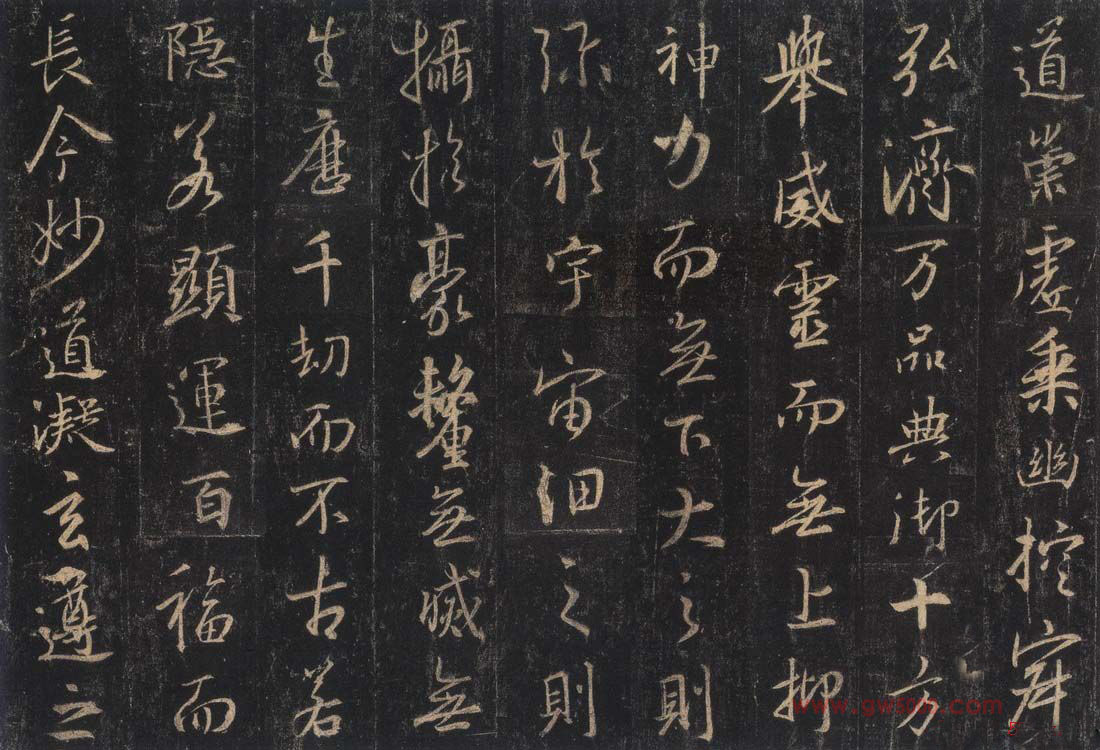 道崇虚乘幽控寂
弘濟万品典御十方
舉威靈而無上抑
神力而無下大之則
弥於宇宙細之則
攝於豪釐無滅無
生歷千劫而不古若
隐若顯運百福而
長今妙道凝玄遵之